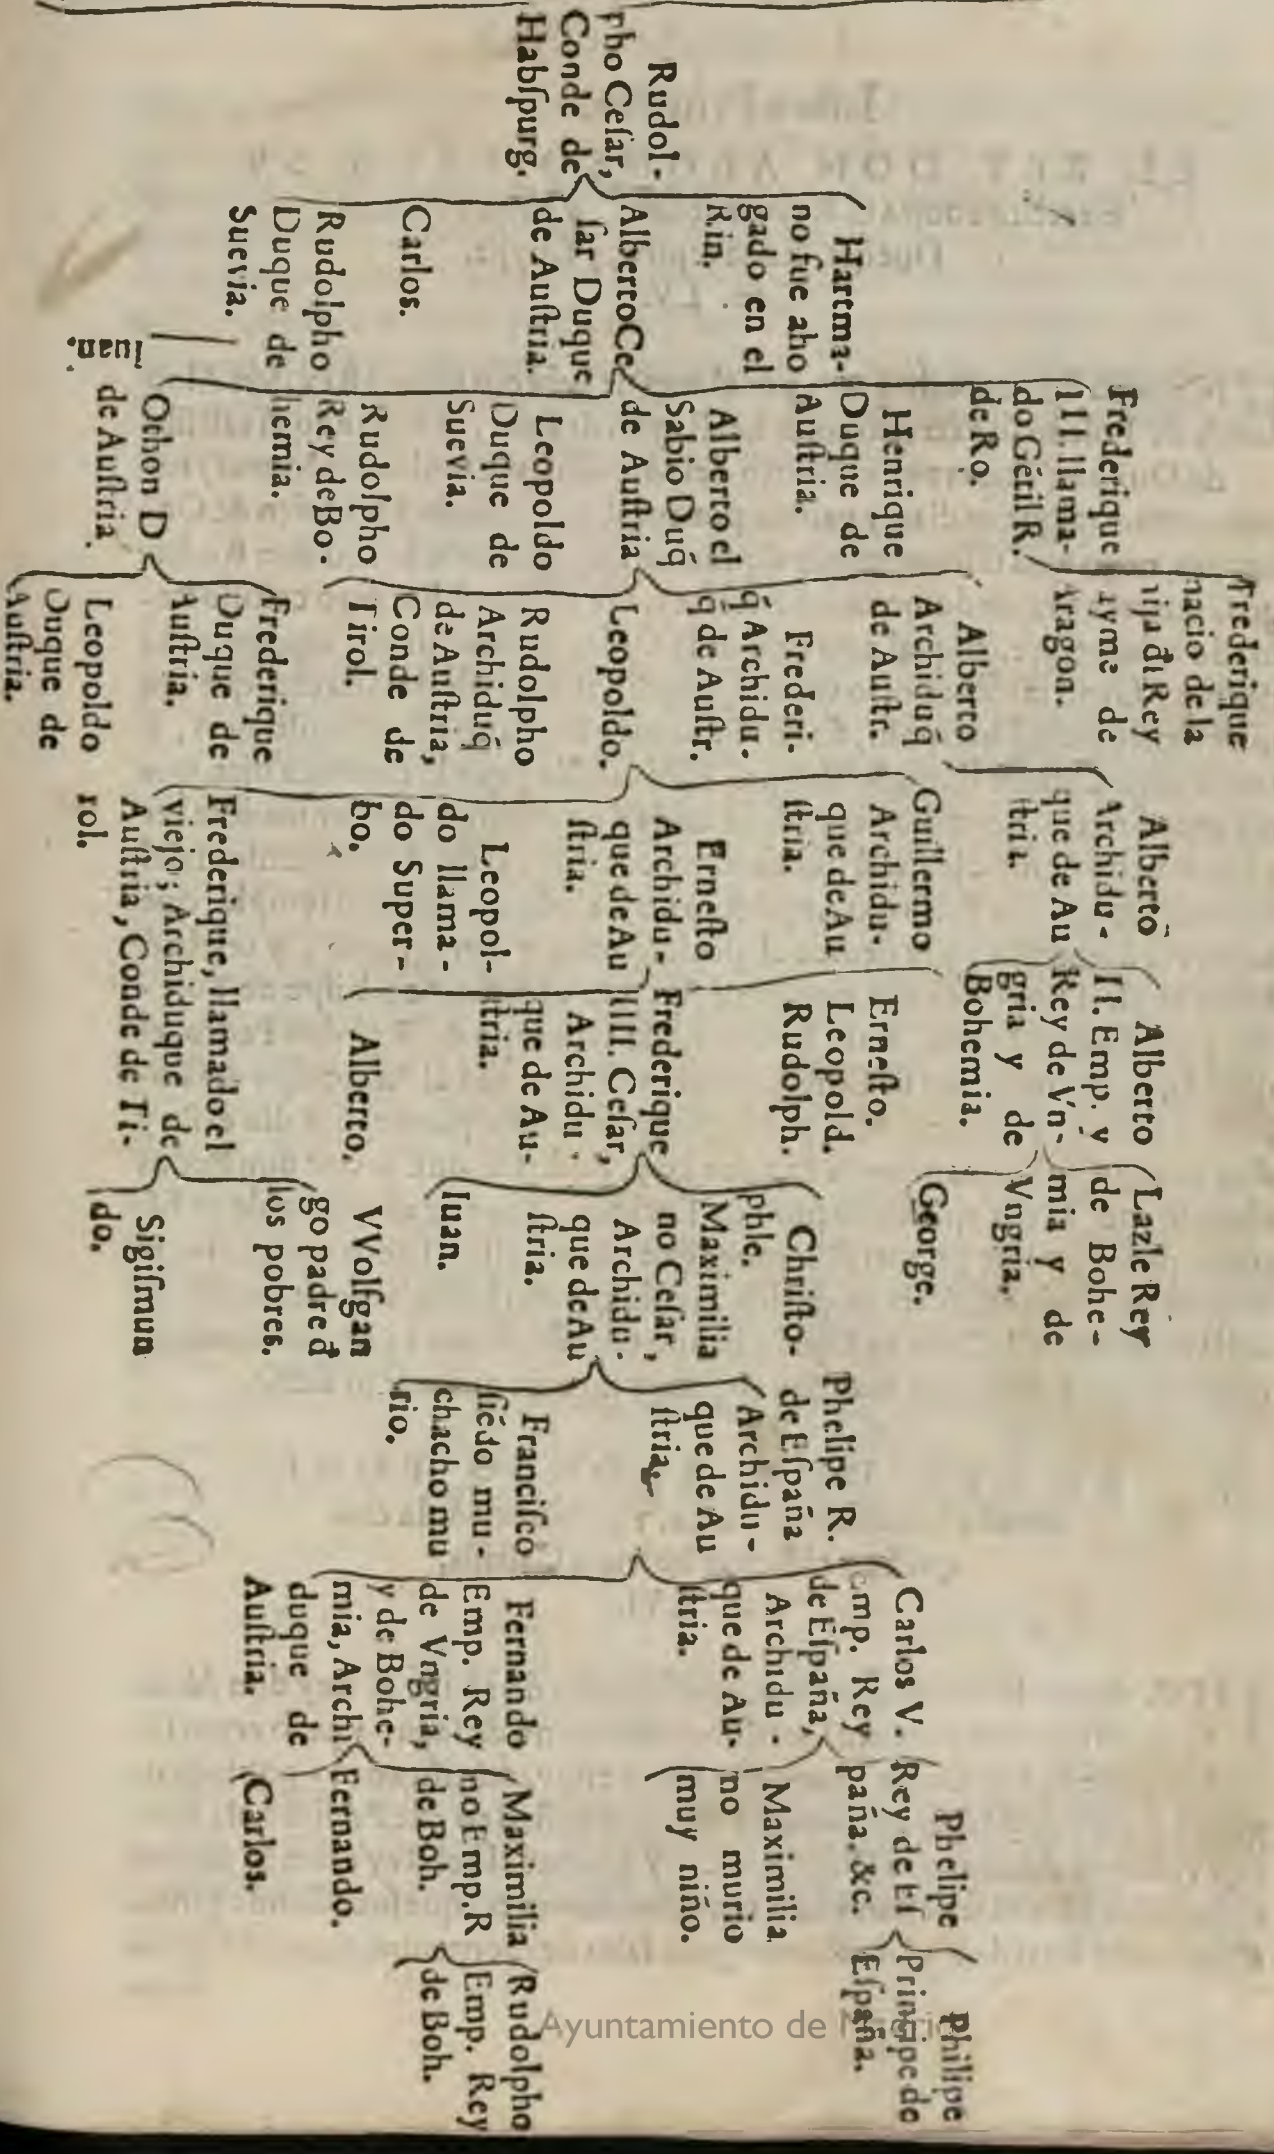 Rudol-
pho Ceſar,
Conde de
Habſpurg.
Hartma-
no fue aho
gado en el
Rin.
AlbertoCe
ſar Duque
de Auſtria.
Carlos.
Rudolpho
Duque de
Suevia.
Iuan.
Frederique
III. llama-
do Gẽtil R.
de Ro.
Henrique
Duque de
Auſtria.
Alberto el
Sabio Duq̃
de Auſtria
Leopoldo
Duque de
Suevia.
Rudolpho
Rey de Bo-
hemia.
Othon D
de Auſtria.
Frederique
nacio de la
hija đl Rey
Iayme de
Aragon.
Alberto
Archiduq̃
de Auſtr.
Frederi-
q̃ Archidu-
q̃ de Auſtr.
Leopoldo.
Rudolpho
Archiduq̃
de Auſtria,
Conde de
Tirol.
Frederique
Duque de
Auſtria.
Leopoldo
Duque de
Auſtria.
Alberto
Archidu-
que de Au
ſtria.
Guillermo
Archidu-
que de Au
ſtria.
Erneſto
Archidu-
que de Au
ſtria.
Leopol-
do llama-
do Super-
bo.
Frederique, llamado el
viejo; Archiduque de
Auſtria, Conde de Ti-
rol.
Alberto
II. Emp. y
Rey de Vn-
gria y de
Bohemia.
Erneſto.
Leopold.
Rudolph.
Frederique
IIII. Ceſar,
Archidu-
que de Au-
ſtria.
Alberto.
Lazle Rey
de Bohe-
mia y de
Vngria.
George.
Chriſto-
phle.
Maximilia
no Ceſar,
Archidu-
que de Au
ſtria.
Iuan.
VVolfgan
go padre đ
los pobres.
Sigiſmun
do.
Phelipe R.
de Eſpaña
Archidu-
que de Au
ſtria.
Franciſco
ſiẽdo mu-
chacho mu
rio.
Carlos V.
Emp. Rey
de Eſpaña,
Archidu-
que de Au-
ſtria.
Fernando
Emp. Rey
de Vngria,
y de Bohe-
mia, Archi
duque de
Auſtria.
Phelipe
Rey de Eſ
paña. &c.
Maximilia
no murio
muy niño.
Maximilia
no Emp. R
de Boh.
Fernando.
Carlos.
Philipe
Principe de
Eſpaña.
Rudolpho
Emp. Rey
de Boh.
Ayuntamiento de Madrid